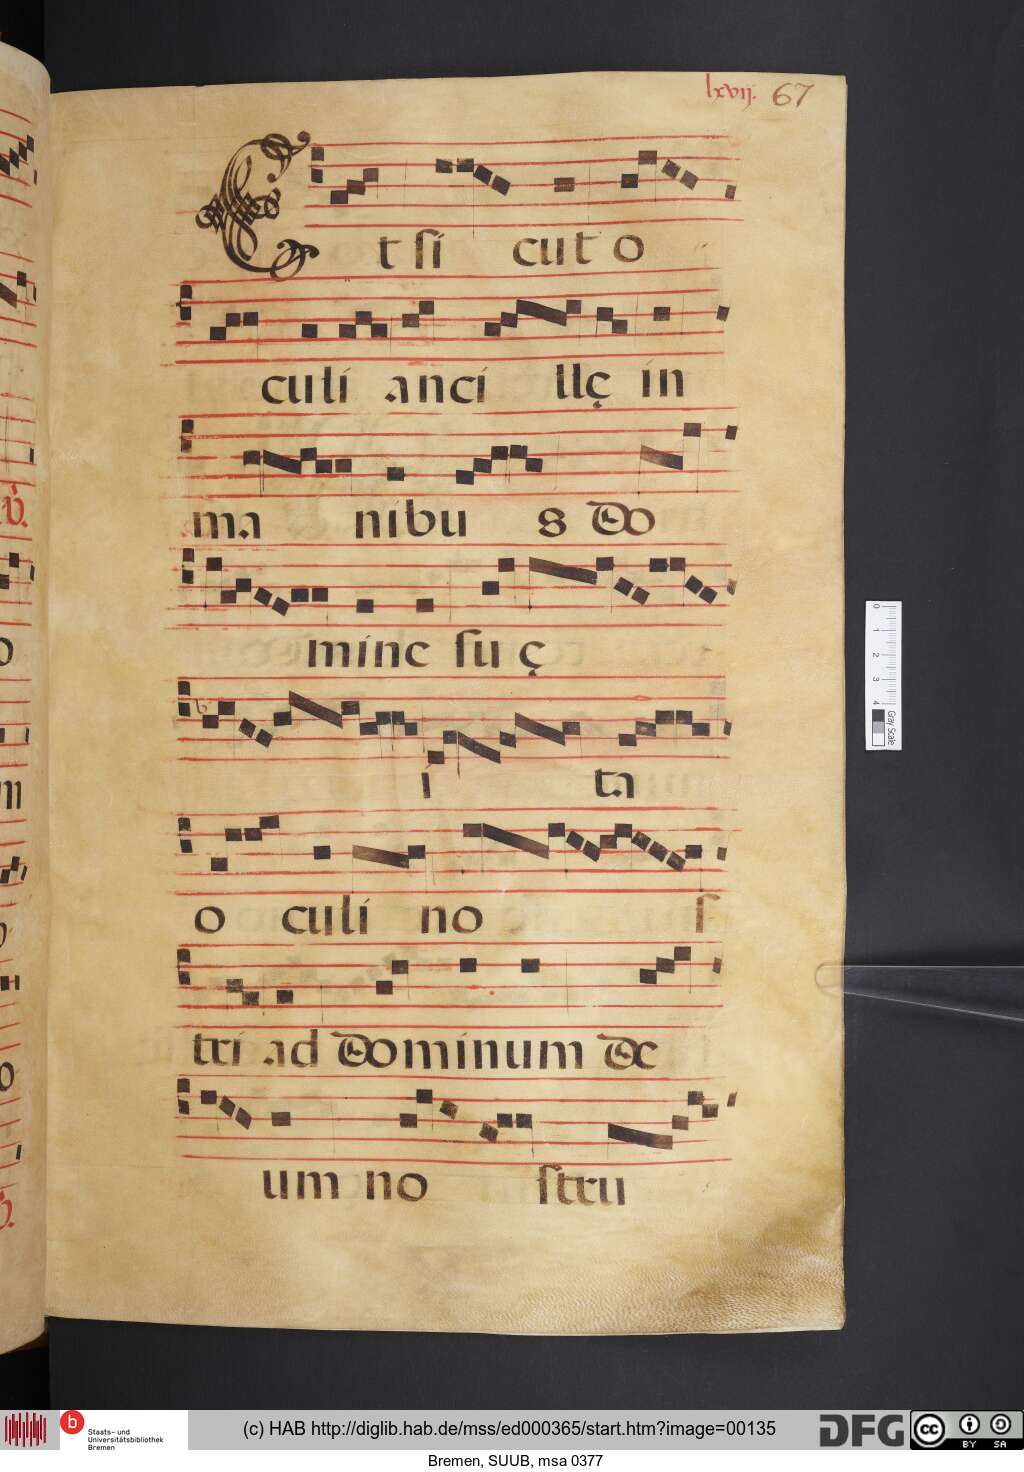 lxvij. 67
Et si cut o
culi anci llę in
ma nibu s do
mine su ę
i ta
o culi no s
tri ad dominum de
um no stru
0 1 2 3 4
Gray Scale
b Staats- und
Universitätsbibliothek
Bremen
(c) HAB http://diglib.hab.de/mss/ed000365/start.htm?image=00135
DFG
cc BY SA
Bremen, SUUB, msa 0377